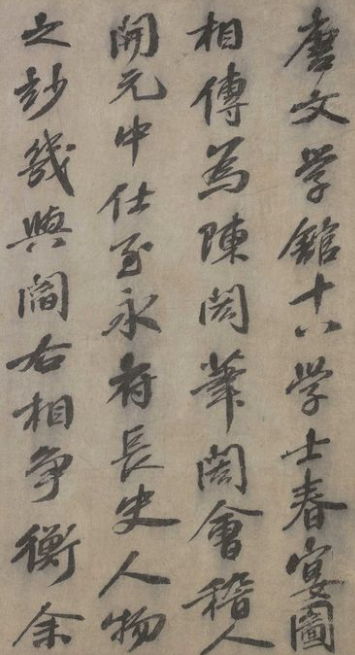 唐文学館十八学士春宴圖
相傳為陳閎筆閎會稽人
開元中仕至永府長史人物
之妙幾與閻右相争衡余